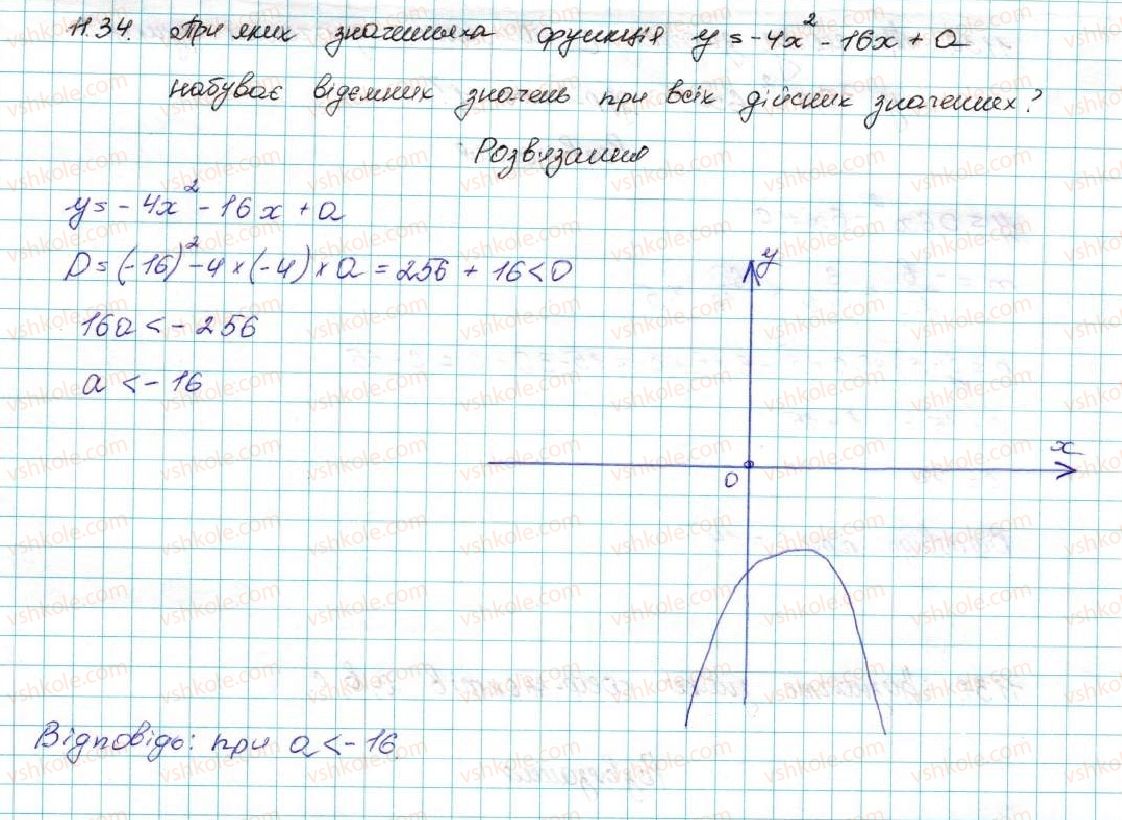 11.34. При яких значенняха функція y = -4x² - 16x + a
набуває відємних значень при всіх дійсних значеннях?
Розвязання
y = -4x² - 16x + a
D = (-16)² - 4 × (-4) × a = 256 + 16 < 0
16a < - 256
a < - 16
y
x
0
Відповідь: при a < - 16.